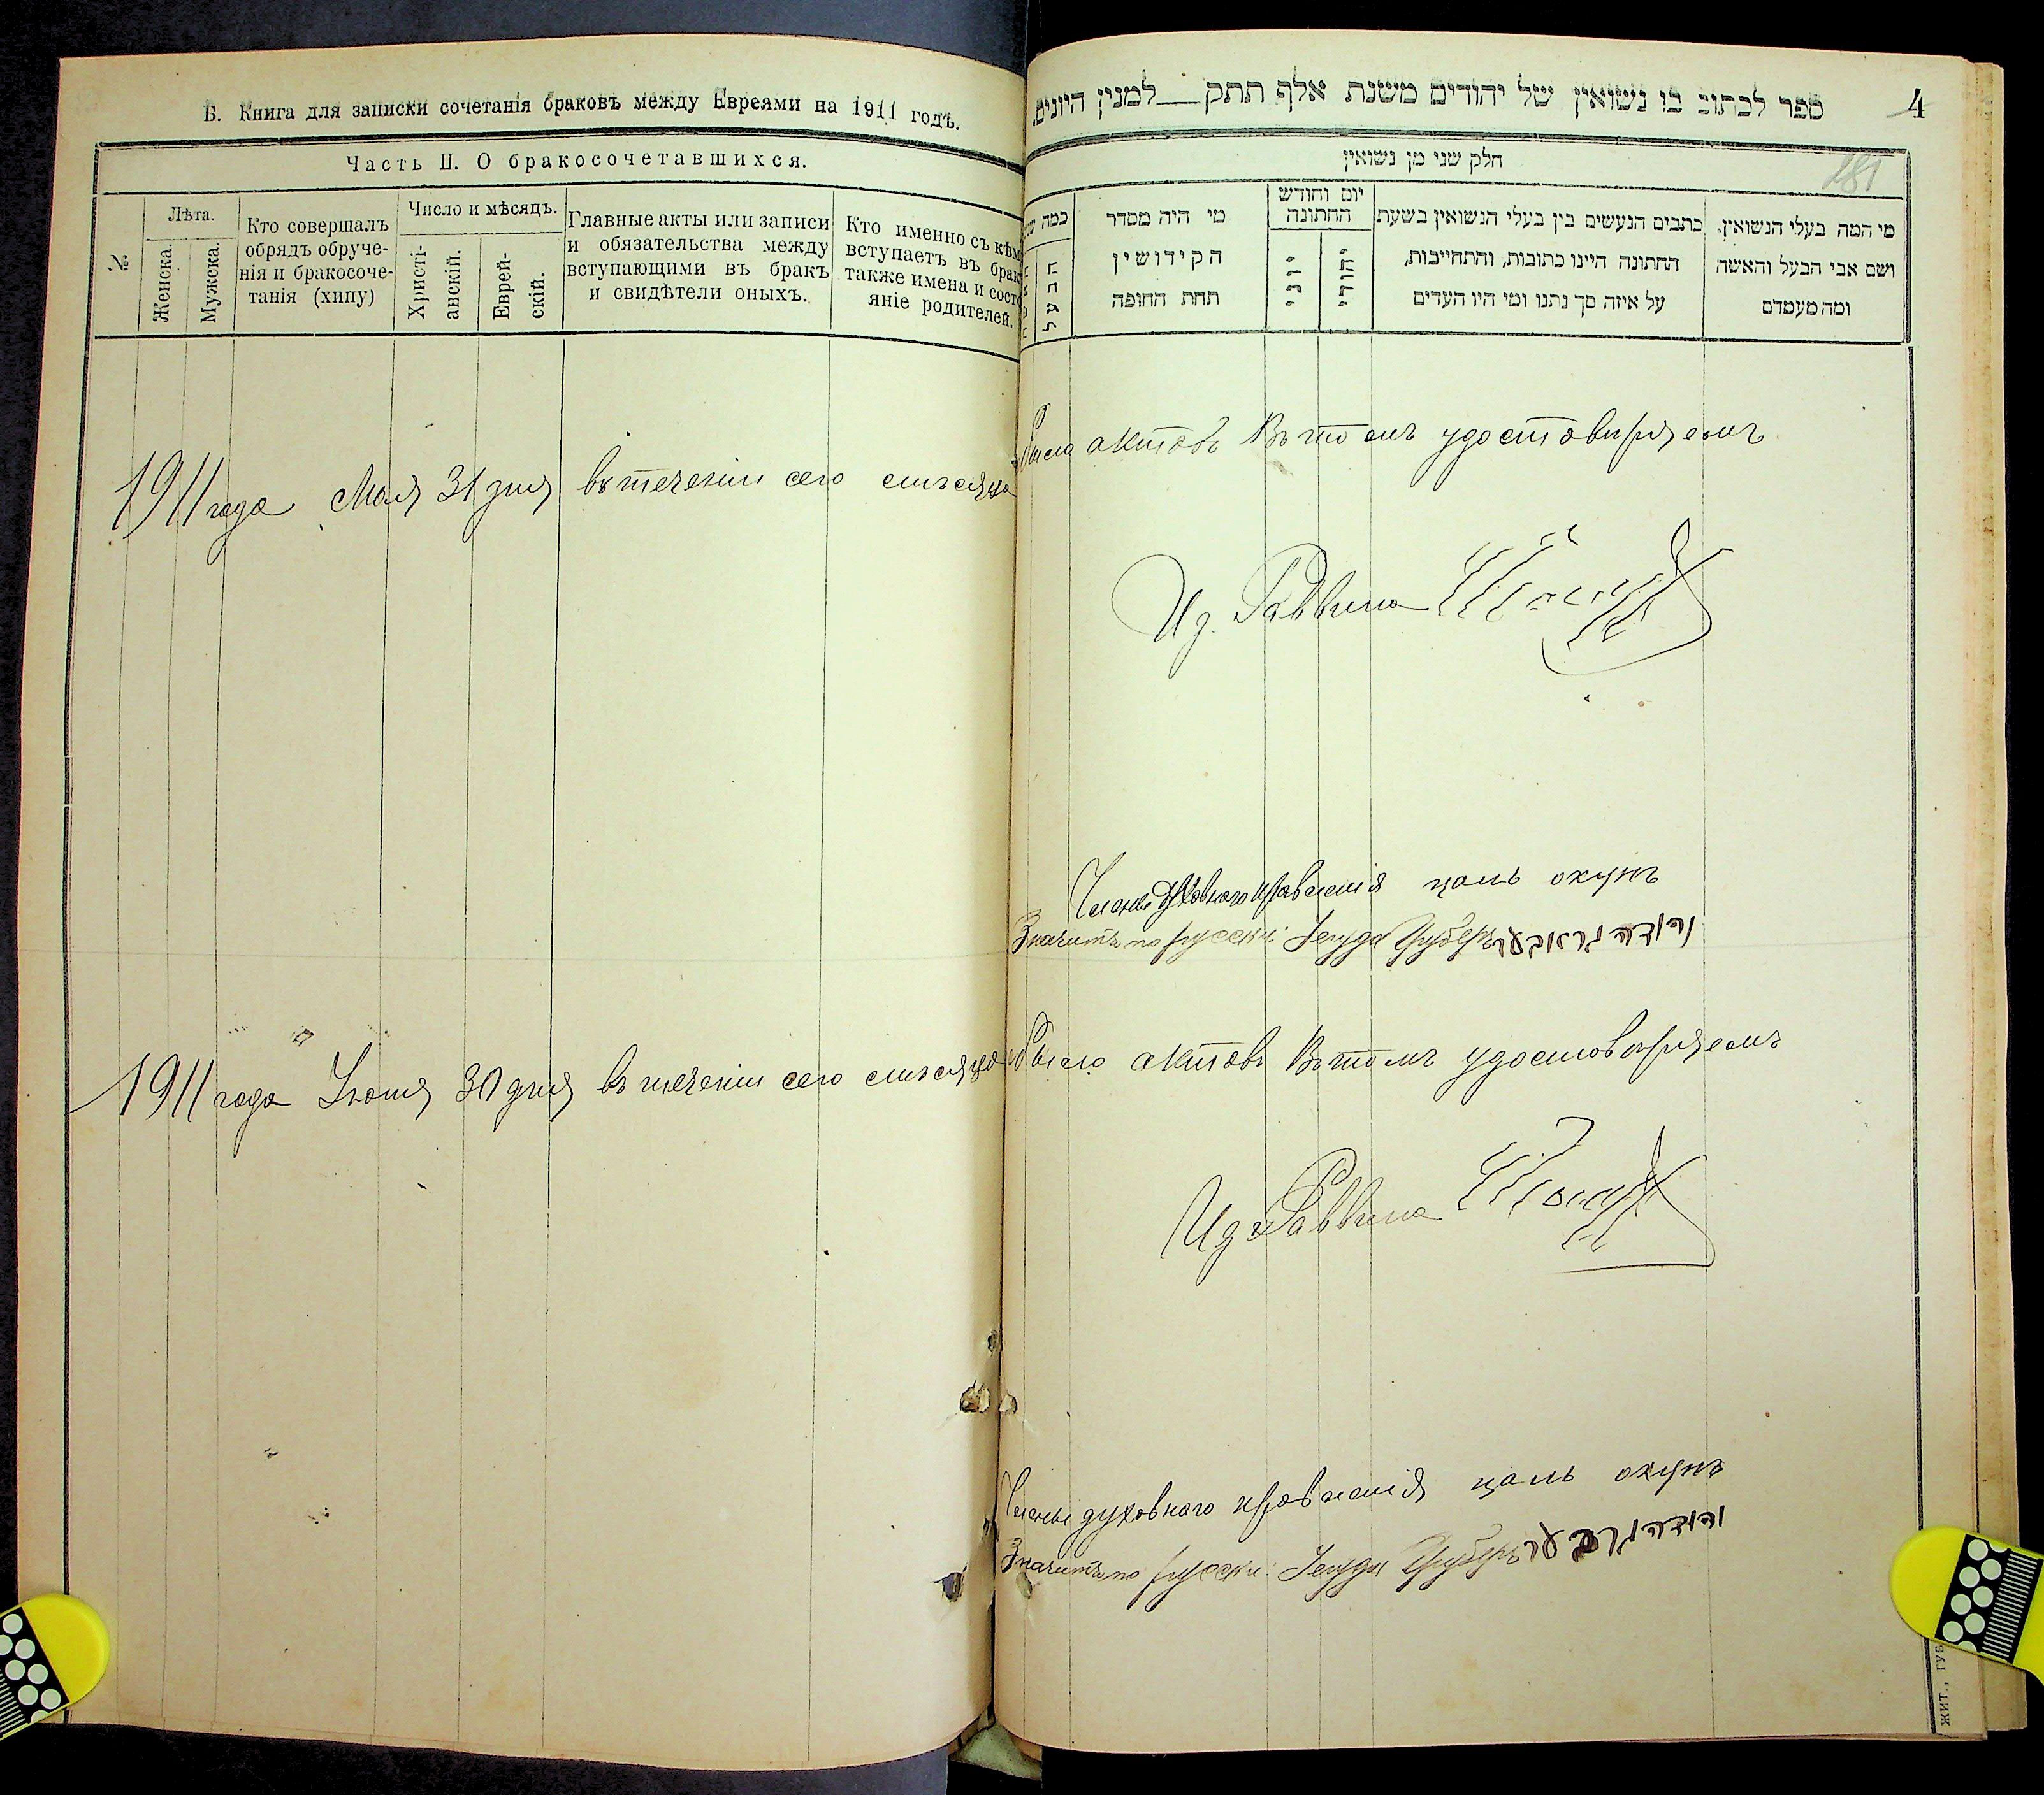 Б. Книга для записки сочетанія браковъ между Евреями на 1911 годъ.
Часть II. О бракосочетавшихся.
№
Лѣта.
Женска.
Мужска.
Кто совершалъ
обрядъ обруче-
нія и бракосоче-
танія (хипу)
Число и мѣсяцъ.
Христі-
анскій.
Еврей-
скій.
Главные акты или записи
и обязательства между
вступающими въ бракъ
и свидѣтели оныхъ.
Кто именно съ кѣмъ
вступаетъ въ бракъ
также имена и состо
яніе родителей.
1911 года Мая 31 дня въ теченіи сего мѣсяца
1911 года Іюня 30 дня въ теченіи сего мѣсяца
ספר לכתוב בו נשואין של יהודים משנת אלף תתק__למנין היונים.
4
281
חלק שני מן נשואין
מי המה בעלי הנשואין.
ושם אבי הבעל והאשה
ומה מעמדם
כתבים הנעשים בין בעלי הנשואין בשעת
החתונה היינו כתובות, והתחייבות,
על איזה סך נתנו ומי היו העדים
יום וחודש
החתונה
יהודי
יוני
מי היה מסדר
הקידושין
תחת החופה
כמה
הבעל
актовъ Въ томъ удостовѣряемъ
Ид. Раввина
Члены Духовнаго правленія цаль окунъ
Значитъ по русски: Іегуда Груберъ יהודה גראבער
актовъ Въ томъ удостовѣряемъ
Ид. Раввина
Члены духовнаго правленія цаль окунъ
Значитъ по русски: Іегуда Груберъ יהודה
жит., губ